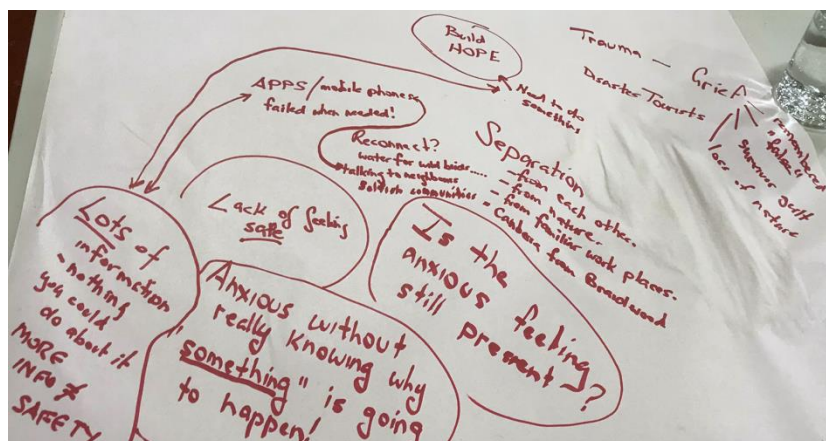 Build
HOPE
Need to do
something
Trauma — Grief
Disaster Tourists
remembered
survivor guilt
loss of nature
APPS/mobile phones
failed when needed!
Reconnect?
water for wild birds.....
talking to neighbours
communities
Separation
- from each other.
- from nature.
- from familiar work places.
" Canberra from Braidwood
Lack of feeling
safe
Lots of
information
- nothing
you could
do about it
MORE
INFO ≠
SAFETY
Anxious without
really knowing why
"something" is going
to happen!
Is the
anxious feeling
still present?